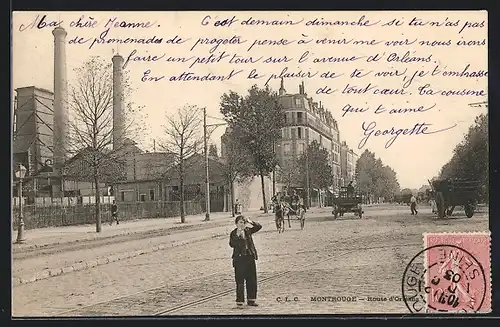 Ma chère Jeanne.
C'est demain dimanche si tu n'as pas
de promenades de projeter pense à venir me voir nous irons
faire un petit tour sur l'avenue d'Orléans.
En attendant le plaisir de te voir, je t'embrasse
de tout cœur. Ta cousine
qui t'aime
Georgette
C. L. C. MONTROUGE — Route d'Orléans
MONTROUGE
SEINE
03